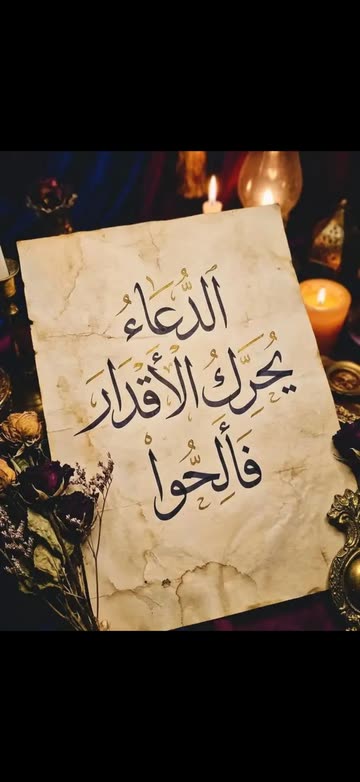 الدُّعَاءُ
يُحَرِّكُ الْأَقْدَارَ
فَأَلِحُّواْ